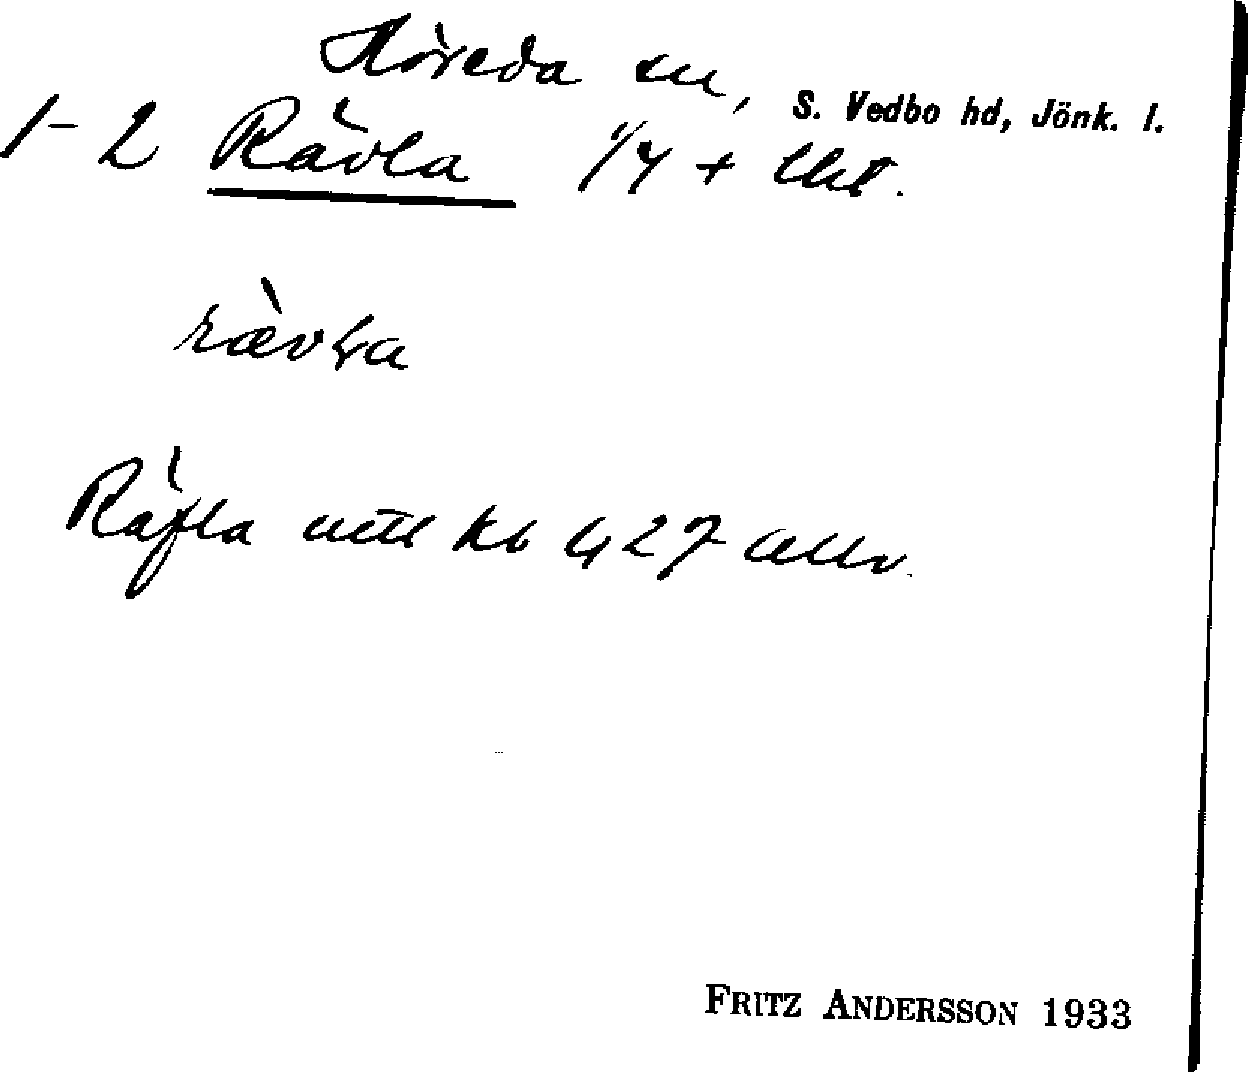 Höreda sn, S. Vedbo hd, Jönk. l.
1-2 Rävla 1/4 +
rævla
Räfla uttl kb 427
FRITZ ANDERSSON 1933